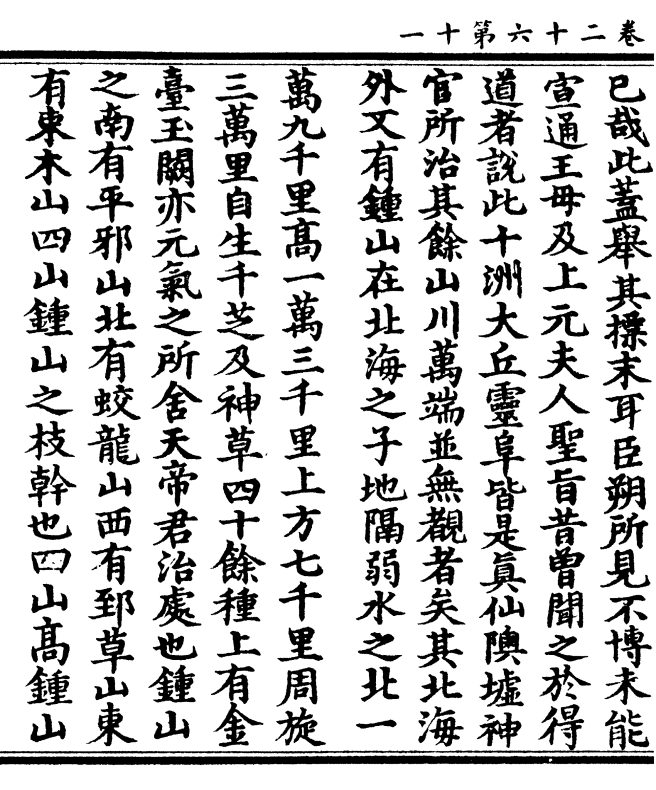 卷二十六第十一
已哉此蓋舉其摽末耳臣朔所見不博未能
宣通王母及上元夫人聖旨昔曾聞之於得
道者說此十洲大丘靈阜皆是眞仙隩墟神
官所治其餘山川萬端並無覩者矣其北海
外又有鍾山在北海之子地隔弱水之北一
萬九千里高一萬三千里上方七千里周旋
三萬里自生千芝及神草四十餘種上有金
臺玉闕亦元氣之所舍天帝君治處也鍾山
之南有平邪山北有蛟龍山西有郅草山東
有東木山四山鍾山之枝幹也四山高鍾山